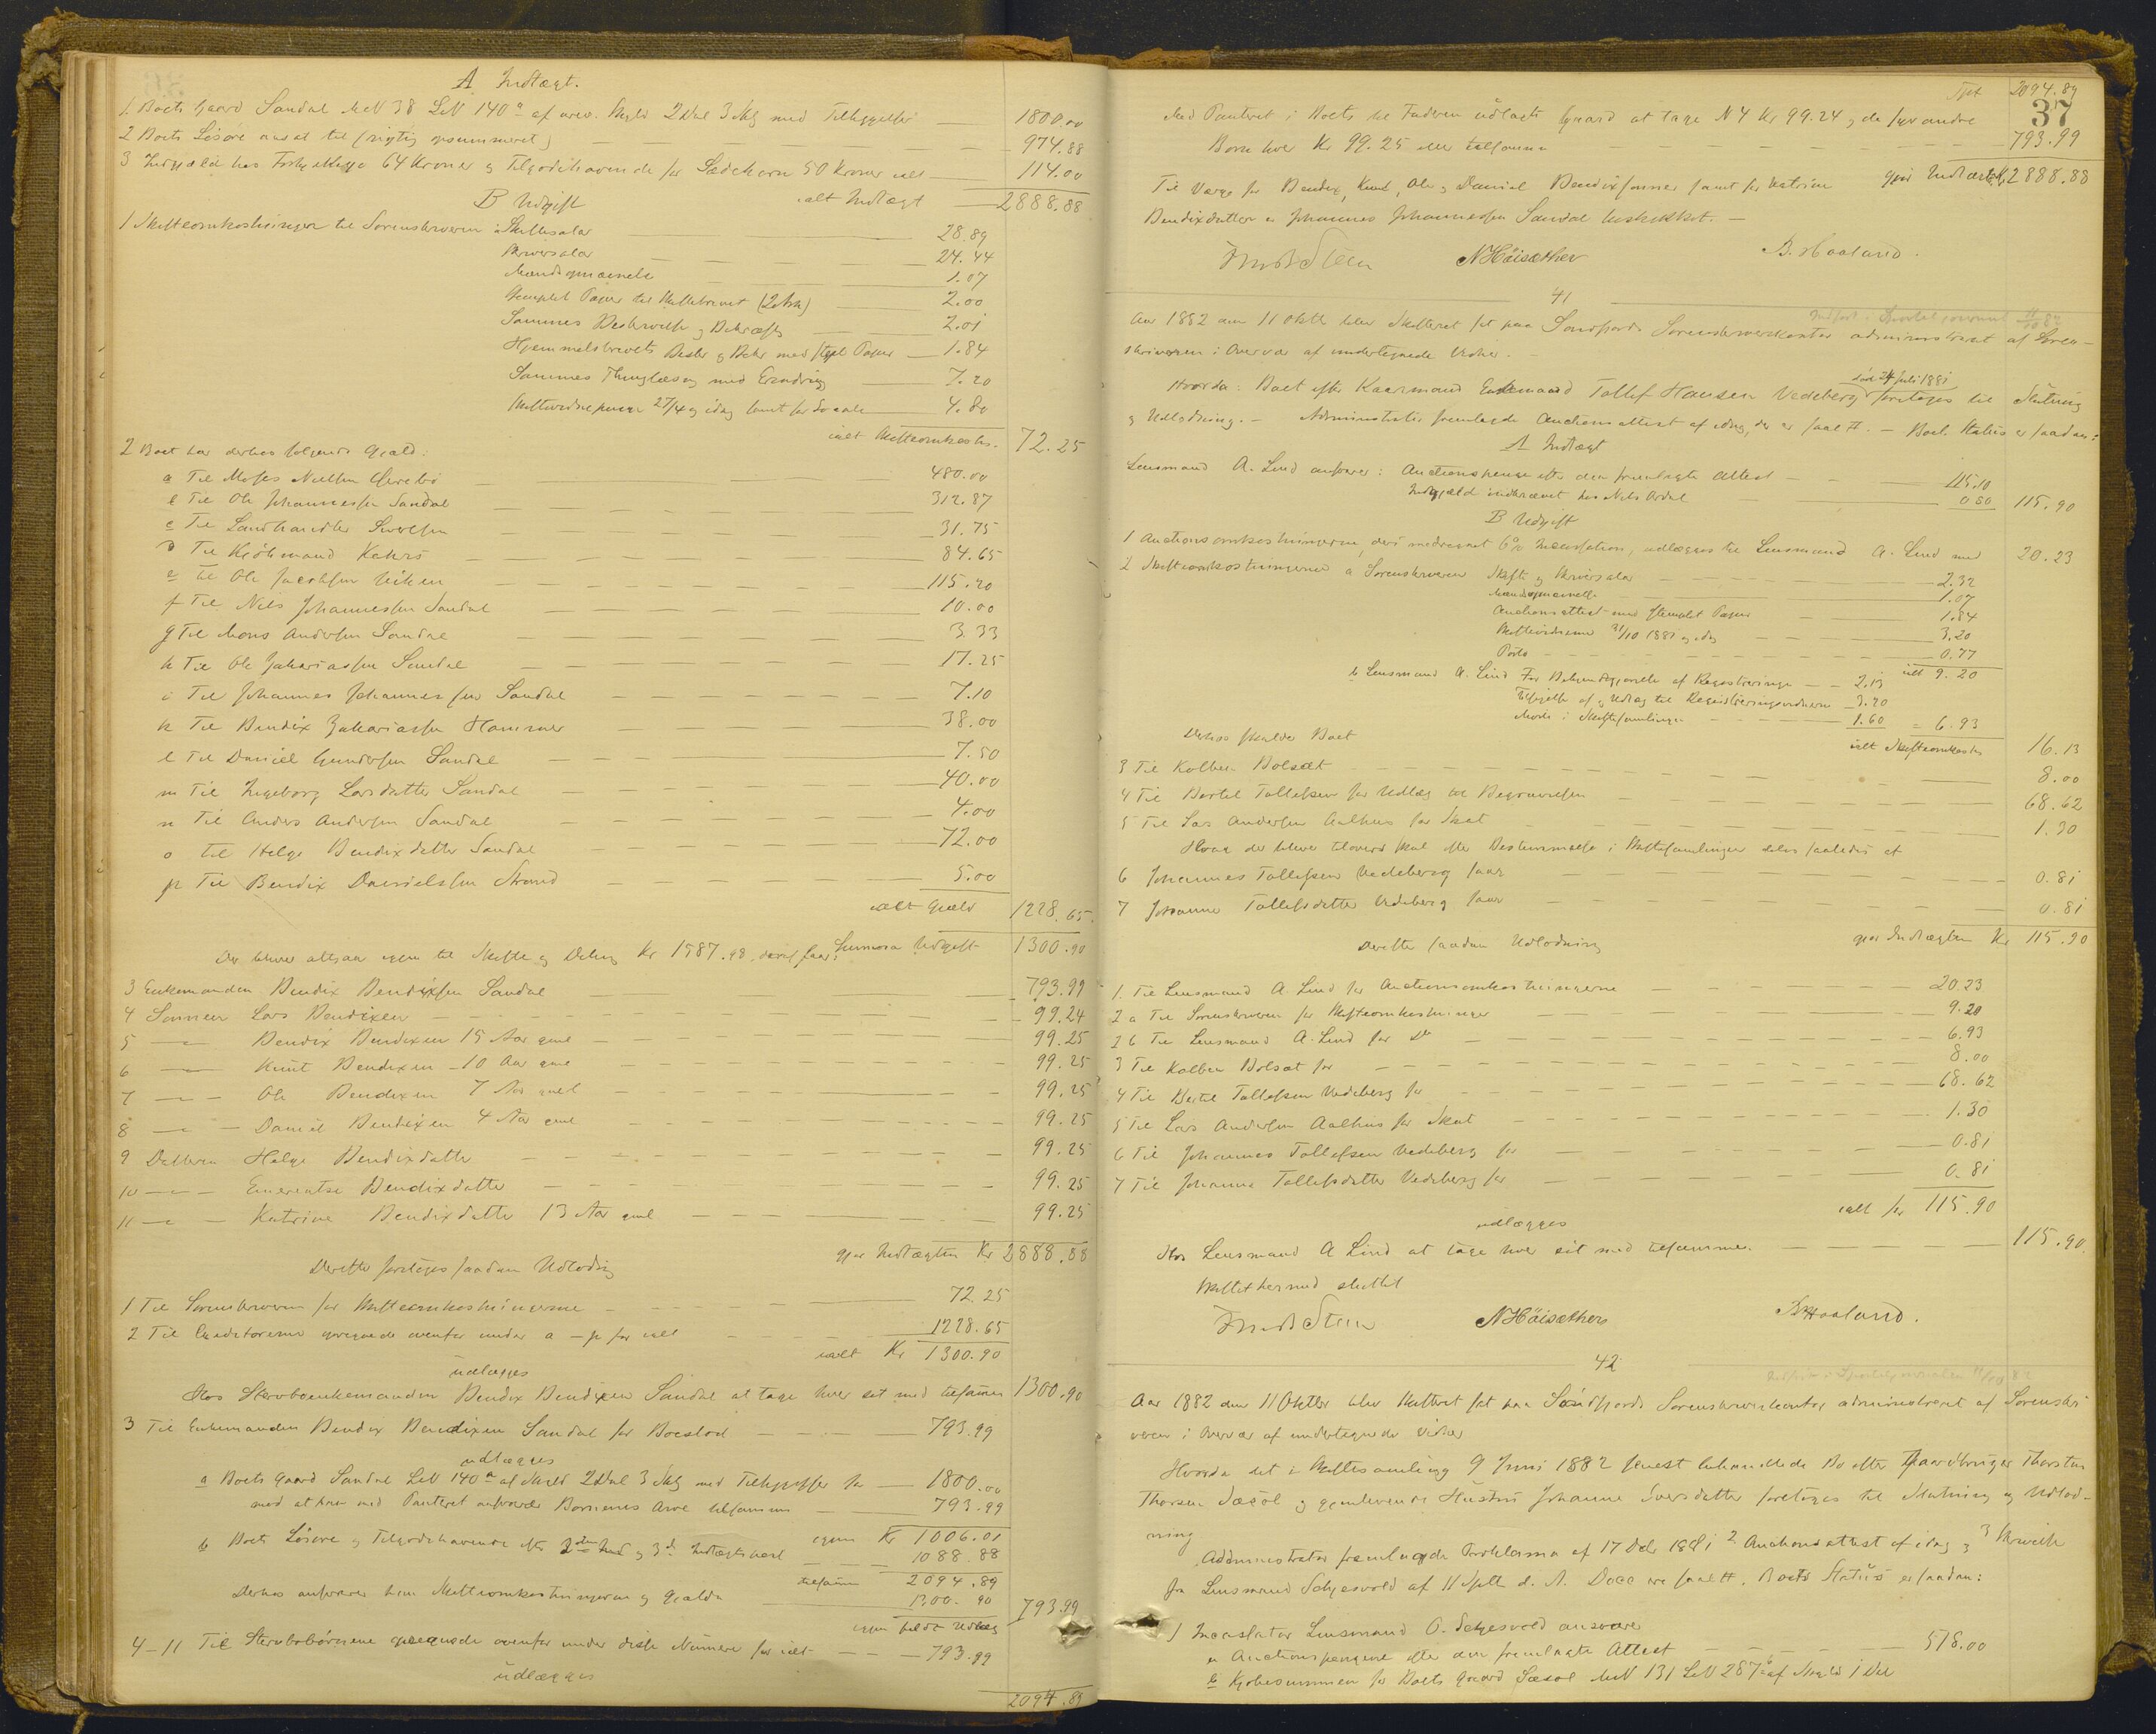 A Indtægt.
1. Boets Gaard Sandal MN 38 LN 140a af urev. Skyld 2 Dal 3 Skg med Tilliggelser 1800.00
2 Boets Løsøre nu til (rigtig opsummeret) 974.88
3 Indgjæld hos 64 Kroner og Tilgodehavende for Sædekorn 50 Kroner ialt 114.00
ialt Indtægt 2888.88
B Udgift
1 Skifteomkostninger til Sorenskriveren Skiftesalær 28.89
Skriversalær 24.44
1.07
Stemplet Papir til Skiftebrevet (2 Ark) 2.00
Sammes Beskrivelse og Bekræft 2.01
Hjemmelsbrevets Beskr og Bekr med stpl Papir 1.84
Sammes Thinglæsng med Erindring 7.20
27/4 og idag samt for Locale 4.80
ialt Skifteomkostn. 72.25
2 Boet har derhos følgende Gjæld:
a Til Moses Nielsen 480.00
b Til Ole Johannessen Sandal 312.87
c Til Landhandler 31.75
d Til Kjøbmand Kahrs 84.65
e Til Ole Jacobsen 115.20
f Til Nils Johannessen Sandal 10.00
g Til Mons Andersen Sandal 3.33
h Til Ole Zakariassen Sandal 17.25
i Til Johannes Johannessen Sandal 7.10
k Til Bendix Zakariassen Hammer 38.00
l Til Daniel Gundersen Sandal 7.50
m Til Ingeborg Larsdatter Sandal 40.00
n Til Anders Andersen Sandal 4.00
o Til Helge Bendixdatter Sandal 72.00
p Til Bendix Danielsen Strand 5.00
ialt Gjæld 1228.65.
Summa Udgift 1300.90
Der bliver altsaa igjen til Skifte og Deling Kr 1587.98, deraf faar:
3 Enkemanden Bendix Bendixsen Sandal 793.99
4 Sønnen Lars Bendixen 99.24
5 Bendix Bendixen 15 Aar gml 99.25
6 Knut Bendixen 10 Aar gml 99.25
7 Ole Bendixen 7 Aar gml 99.25
8 Daniel Bendixen 4 Aar gml 99.25
9 Datteren Helge Bendixdatter 99.25
10 Emerentse Bendixdatter 99.25
11 Katrine Bendixdatter 13 Aar gml 99.25
gjør Indtægten Kr 2888.88
Derefter foretoges saadan Udlodng
1 Til Sorenskriveren for Skifteomkostningerne 72.25
2 Til Creditorerne opregnede ovenfor under a – p for ialt 1228.65
ialt Kr 1300.90
udlægges
Hos Stervboenkemanden Bendix Bendixen Sandal at tage hver sit med tilsamen 1300.90
3 Til Enkemanden Bendix Bendixen Sandal for Boeslod 793.99
udlægges
a Boets Gaard Sandal LN 140a af Skyld 2 Dal 3 Skg med Tilliggelser for 1800.00
med at han med Panteret ansvarer Børnenes Arv tilsamen 793.99
igjen Kr 1006.01
b Boets Løsøre og Tilgodehavende efter 2den og 3de Indtægtspost 1088.88
tilsamen 2094.89
Derhos ansvarer han Skifteomkostningerne og Gjælden 1300.90
igjen fuldt Udlæg 793.99
4–11 Til Stervbobørnene opregnede ovenfor under disse Numere for ialt 793.99
udlægges
2094.89
Tpt 2094.89
37
Med Panteret i Boets til Faderen udlagte Gaard at tage N 4 Kr 99.24 og de syv andre
Børn hver Kr 99.25 eller tilsamen 793.99
gjør Indtægten Kr 2888.88
Til Værge for Bendix, Knud, Ole og Daniel Bendixsønner samt for Katrine
Bendixdatter er Johannes Johannessen Sandal beskikket. –
Steen N Høisæther B. Haaland.
41
Aar 1882 den 11 Oktbr blev Skifteret sat paa Søndfjords Sorenskriverkontor administreret af Soren-
skriveren i Overvær af undertegnede Vidner.
død 24 Juli 1881
Hvorda: Boet efter Kaarmand Enkemand Tollef Hansen Vedeberg foretoges til Slutning
og Udlodning. – Administrator fremlagde Auctionsattest af idag, der er saal. – Boets Status er saadan:
A Indtægt
Lensmand A. Lind ansvarer: Auctionspenge efter den fremlagte Attest 115.10
Indgjæld inddrevet hos Nils Ardal 0.80 115.90
B Udgift
1 Auctionsomkostningerne, deri medregnet 6% Incassation, udlægges til Lensmand A. Lind med 20.23
2 Skifteomkostningerne a Sorenskriveren Skifte og Skriversalær 2.32
1.07
Auctionsattest med stemplet Papir 1.84
Skiftevidnerne 31/10 1881 og idag 3.20
Porto 0.77
ialt 9.20
b Lensmand A. Lind For Bekjendtgjørelse af Registreringen 2.13
Tilsigelse af og Udlæg til Registreringsvidnerne 3.20
Møde i Skiftesamlingen 1.60 = 6.93
ialt Skifteomkostn 16.13
Derhos skylder Boet
3 Til Kolbein Bolsæt 8.00
4 Til Bertil Tollefsen for Udlæg til Begravelsen 68.62
5 Til Lars Andersen Aalhus for Skat 1.30
Hvad der bliver tilovers skal efter Bestemmelse i Skiftesamlingen deles saaledes at
6 Johannes Tollefsen Vedeberg faar 0.81
7 Johanne Tollefsdatter Vedeberg faar 0.81
gjør Indtægten Kr 115.90
Derefter saadan Udlodning
1. Til Lensmand A. Lind for Auctionsomkostningerne 20.23
2 a Til Sorenskriveren for Skifteomkostninger 9.20
2 b Til Lensmand A. Lind for Do 6.93
3 Til Kolbein Bolsæt for 8.00
4 Til Bertil Tollefsen Vedeberg for 68.62
5 Til Lars Andersen Aalhus for Skat 1.30
6 Til Johannes Tollefsen Vedeberg for 0.81
7 Til Johanne Tollefsdatter Vedeberg for 0.81
ialt for 115.90
udlægges
Hos Lensmand A Lind at tage hver sit med tilsammen 115.90.
Skiftet hermed sluttet
Steen N Høisæther B Haaland.
42
Aar 1882 den 11 Oktber blev Skifteret sat paa Søndfjords Sorenskriverkontor administreret af Sorenskri
veren i Overvær af undertegnede Vidner
Hvorda det i Skiftesamling 9 Juni 1882 senest behandlede Bo efter Gaardbruger Thorsten
Thorsen Sæsol og gjenlevende Hustru Johanne Iversdatter foretoges til Slutning og Udlod-
ning
Administrator fremlagde Proklama af 17 Dcbr 1881 2 Auctionsattest af idag og 3 Skrivelse
fra Lensmand Schjesvold af 11 Septbr d. A. Docc ere saal. Boets Status er saadan:
1 Incassator Lensmand O. Schjesvold ansvarer
a Auctionspengene efter den fremlagte Attest 518.00
b Kjøbesummen for Boets Gaard Sæsol MN 131 LN 287b af Skyld 1 Dal